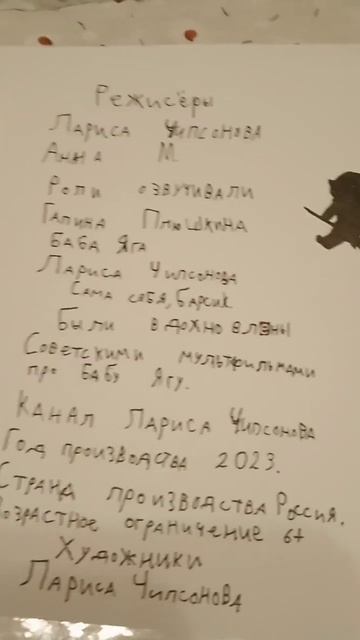 Режисёры
Лариса Чипсонова
Анна М
Роли озвучивали
Галина Плюшкина
Баба Яга
Лариса Чипсонова
Сама себя, Барсик
Были вдохновлены
Советскими мультфильмами
про Бабу Ягу.
Канал Лариса Чипсонова
Год производства 2023.
Страна производства Россия.
Возрастное ограничение 6+
Художники
Лариса Чипсонова